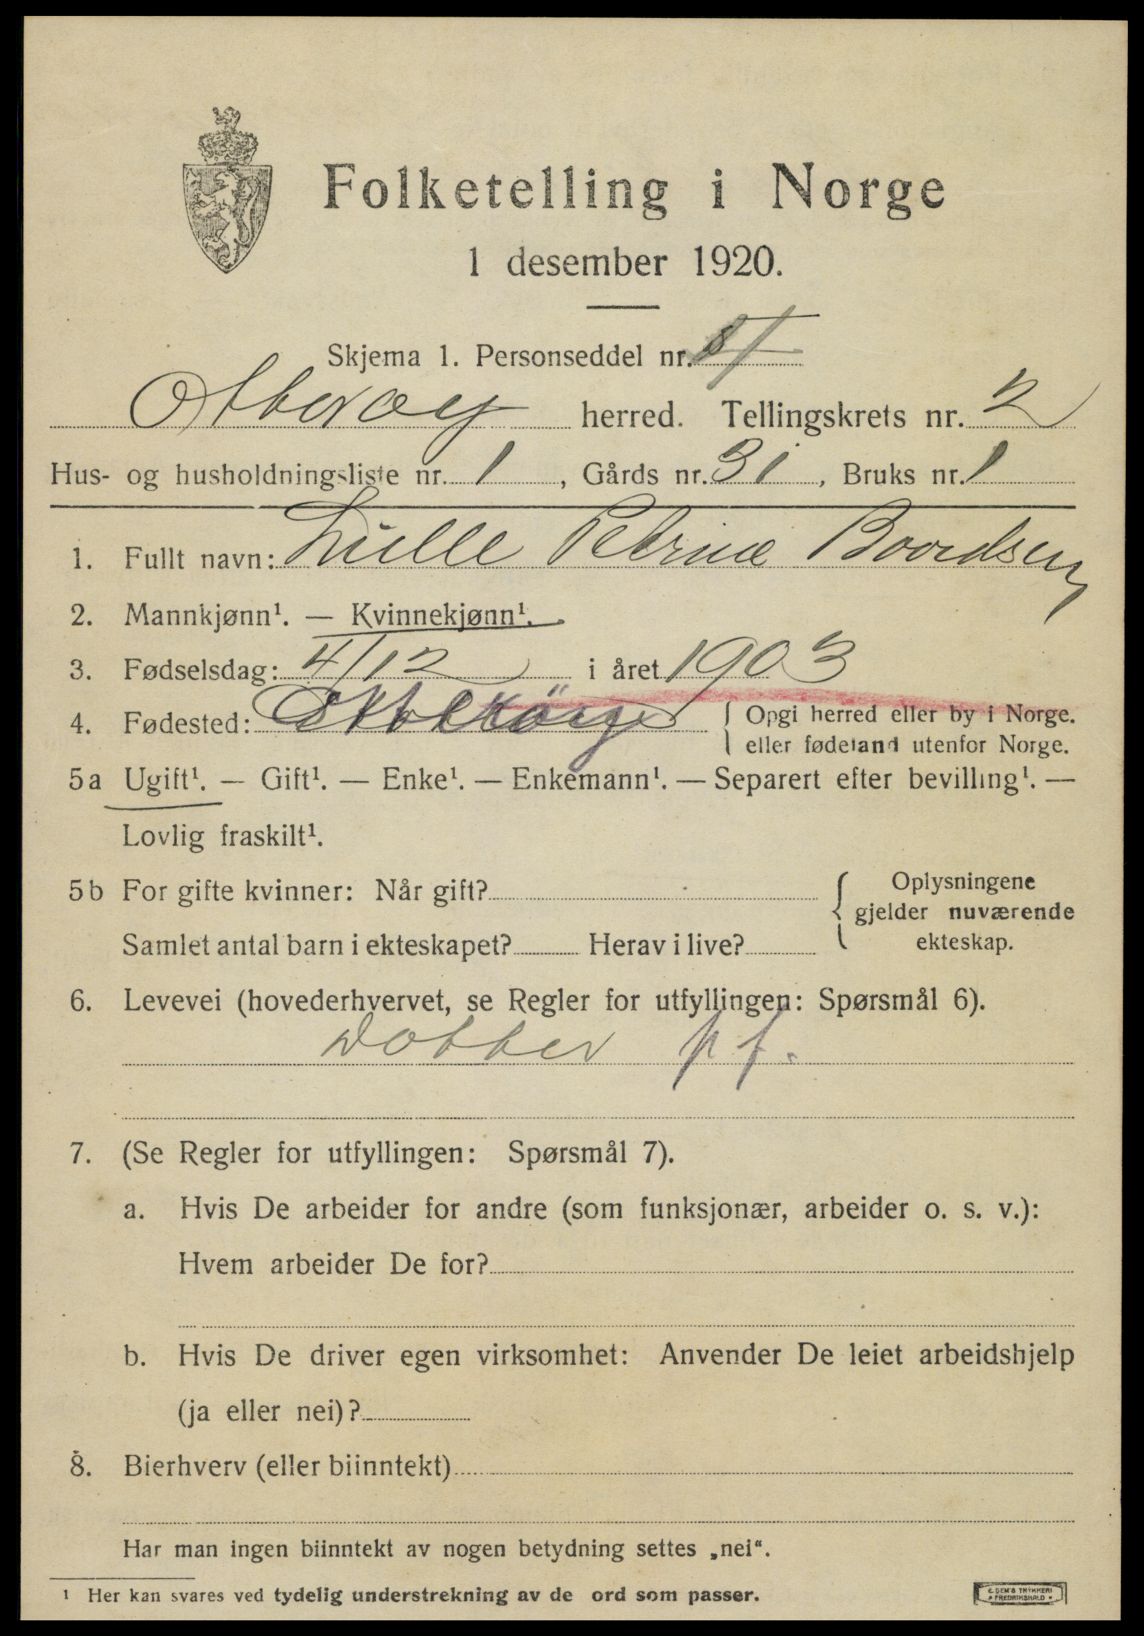 Folketelling i Norge
1 desember 1920.
Skjema 1. Personseddel nr.
Otterøy herred. Tellingskrets nr. 2
Hus- og husholdningsliste nr. 1, Gårds nr. 31, Bruks nr. 1
1. Fullt navn: Lulle Petrine Baardsen
2. Mannkjønn¹. — Kvinnekjønn¹.
3. Fødselsdag: 4/12 i året 1903
4. Fødested: { Opgi herred eller by i Norge.
eller fødeland utenfor Norge.
5a Ugift¹. — Gift¹. — Enke¹. — Enkemann¹. — Separert efter bevilling¹. —
Lovlig fraskilt¹.
5b For gifte kvinner: Når gift? { Oplysningene
gjelder nuværende
Samlet antal barn i ekteskapet? Herav i live? ekteskap.
6. Levevei (hovederhvervet, se Regler for utfyllingen: Spørsmål 6).
Datter pf.
7. (Se Regler for utfyllingen: Spørsmål 7).
a. Hvis De arbeider for andre (som funksjonær, arbeider o. s. v.):
Hvem arbeider De for?
b. Hvis De driver egen virksomhet: Anvender De leiet arbeidshjelp
(ja eller nei)?
8. Bierhverv (eller biinntekt)
Har man ingen biinntekt av nogen betydning settes „nei“.
¹ Her kan svares ved tydelig understrekning av de ord som passer.
E. SEM'S TRYKKERI
FREDRIKSHALD